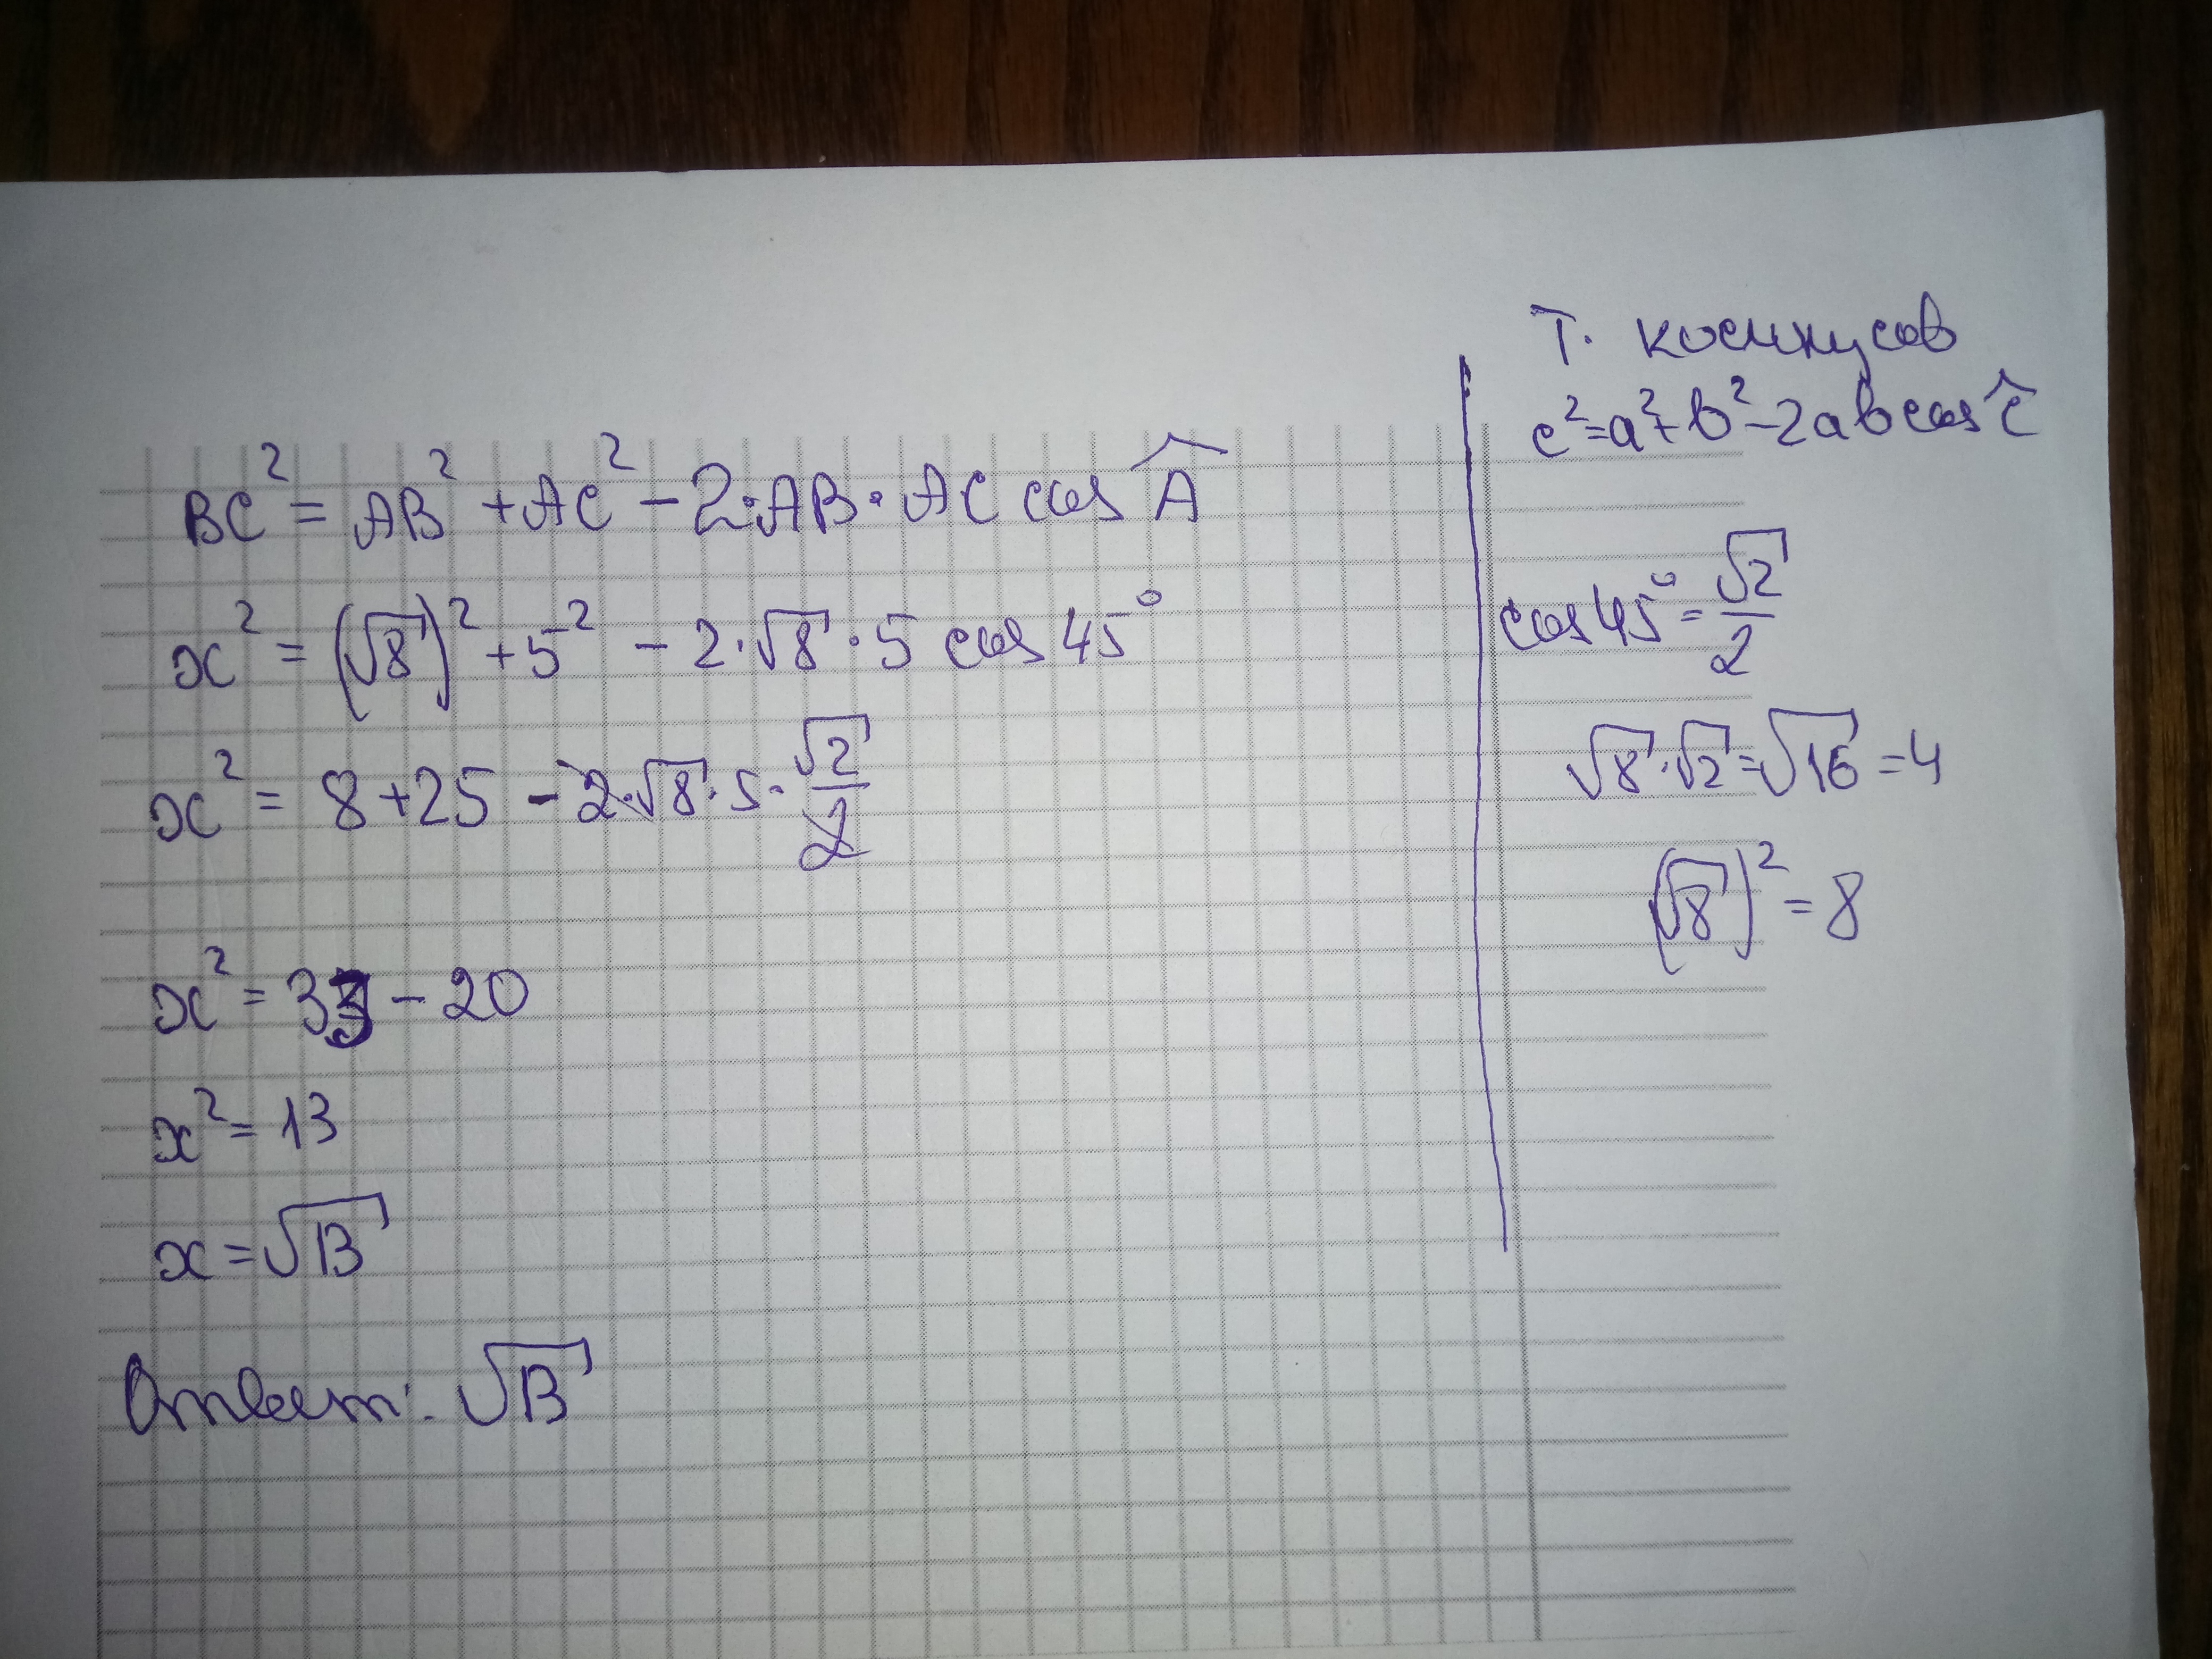 BC² = AB² + AC² - 2·AB·AC cos Â
x² = (√8)² + 5² - 2·√8·5 cos 45°
x² = 8 + 25 - 2·√8·5·√2/2
x² = 33 - 20
x² = 13
x = √13
Ответ: √13
Т. косинусов
c² = a² + b² - 2ab cos ĉ
cos 45° = √2/2
√8·√2 = √16 = 4
(√8)² = 8